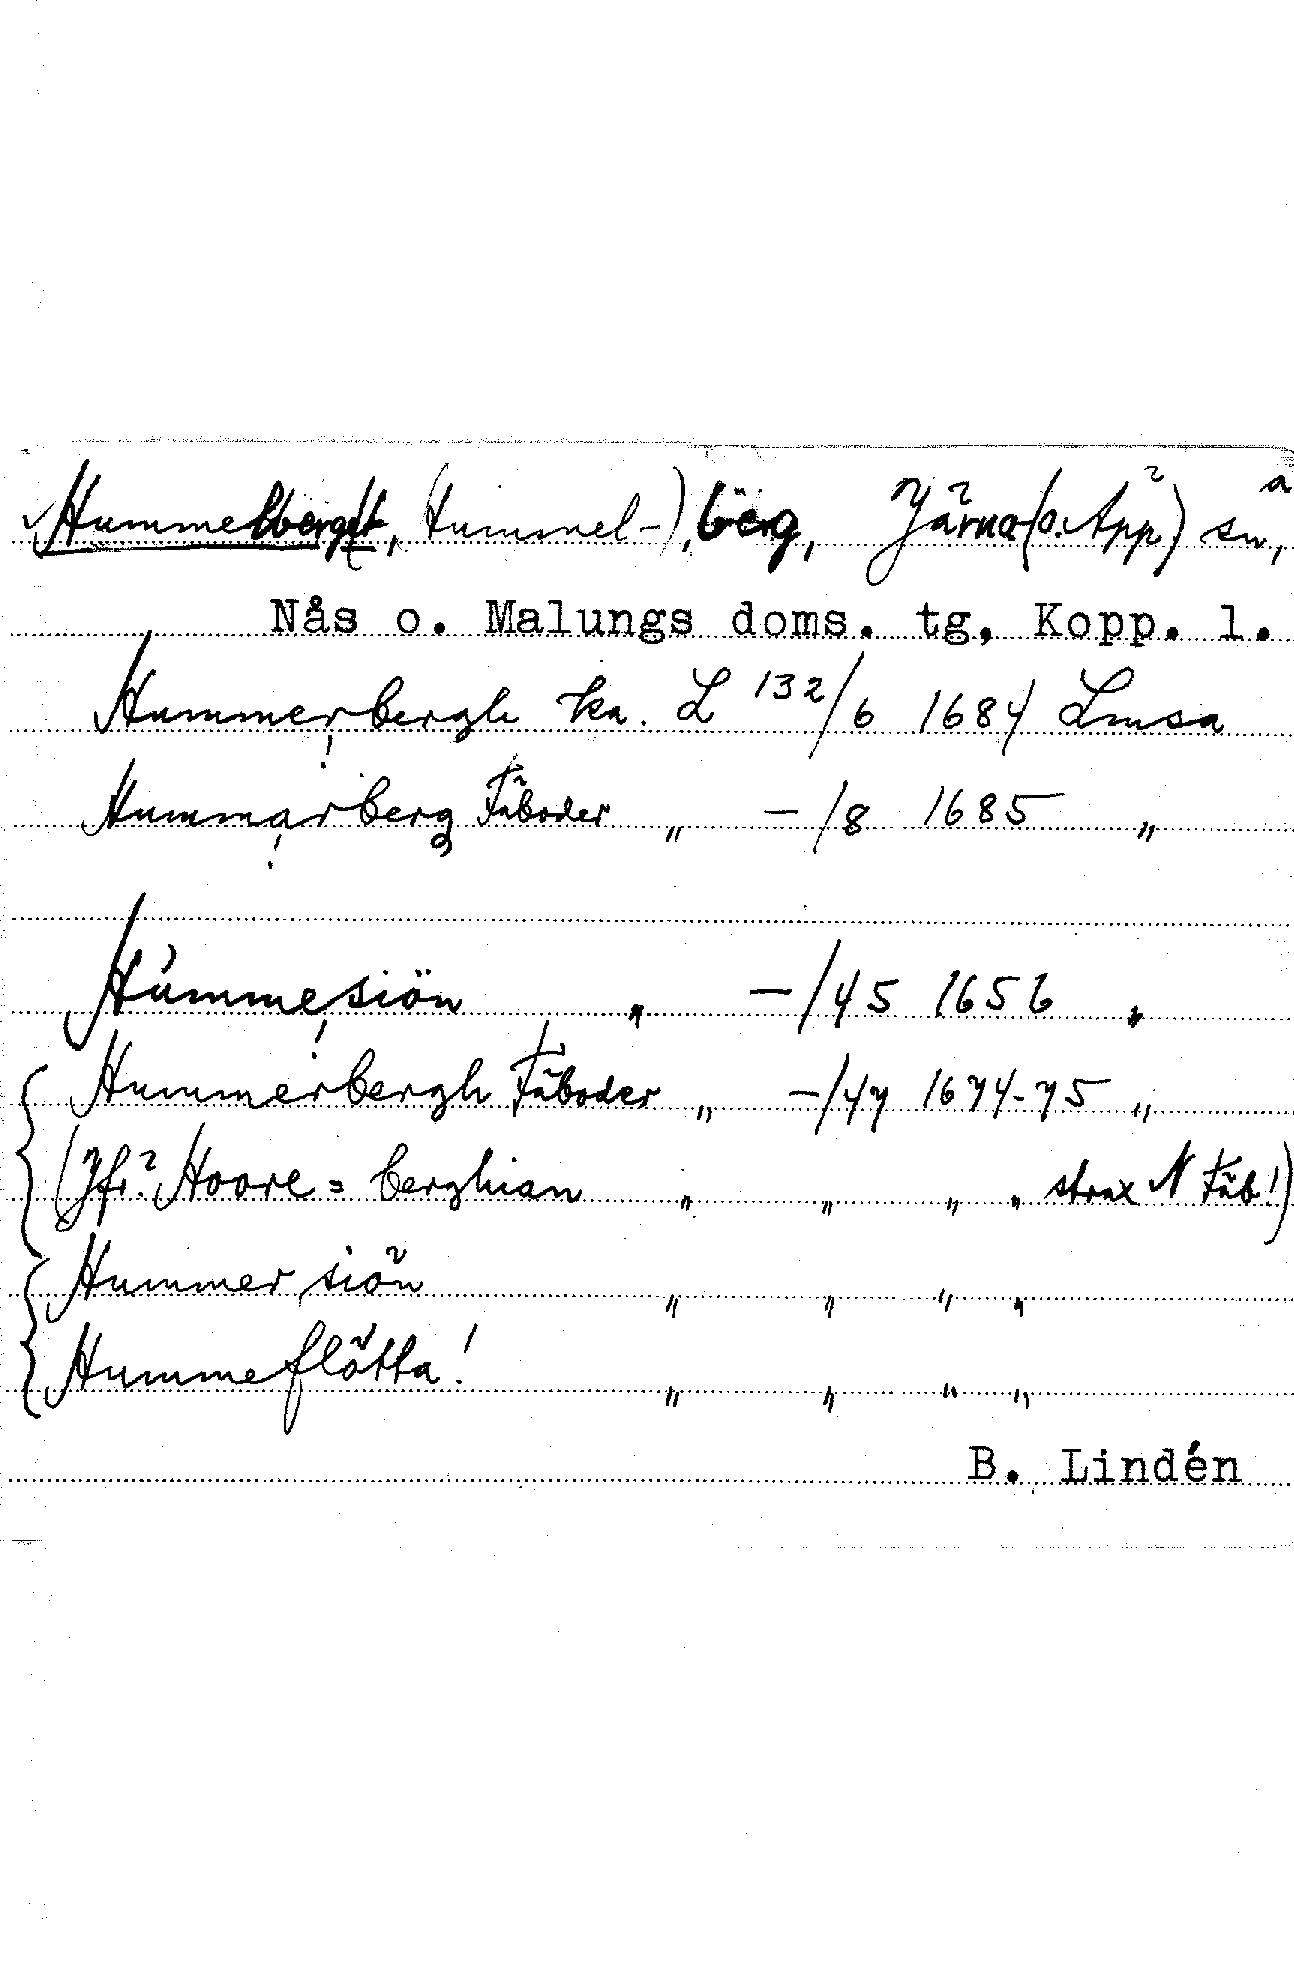 Hummelberget, (Hummel-), berg, Järna (o. Äpp.) sn,
Nås o. Malungs doms. tg, Kopp. l.
Hummerbergh ka. L 132/6 1684 Lmsa
Hummarberg Fäboder „ -/8 1685 „
Hummesiön „ -/45 1656 „
Hummerbergh Fäboder „ -/47 1674-75 „
(Jfr? Hoore= berghian „ „ „ „ strax N Fäb!)
Hummer siön „ „ „ „
Hummeflötta! „ „ „ „
B. Lindén